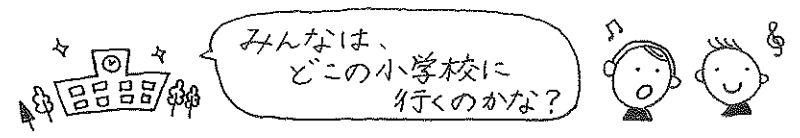 みんなは、
どこの小学校に
行くのかな？